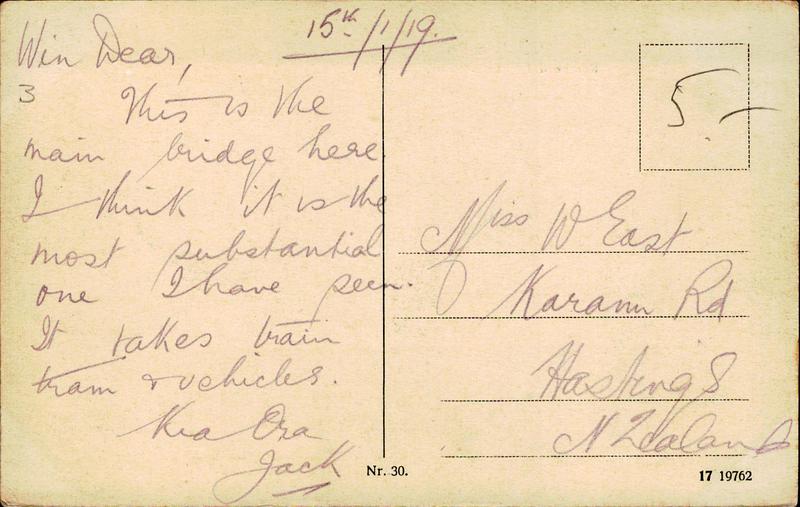 15th/1/19.
Win Dear,
3
This is the
main bridge here.
I think it is the
most substantial
one I have seen.
It takes train
tram & vehicles.
Kia Ora
Jack
5.-
Miss W East
Karamu Rd
Hastings
N Zealand
Nr. 30.
17 19762